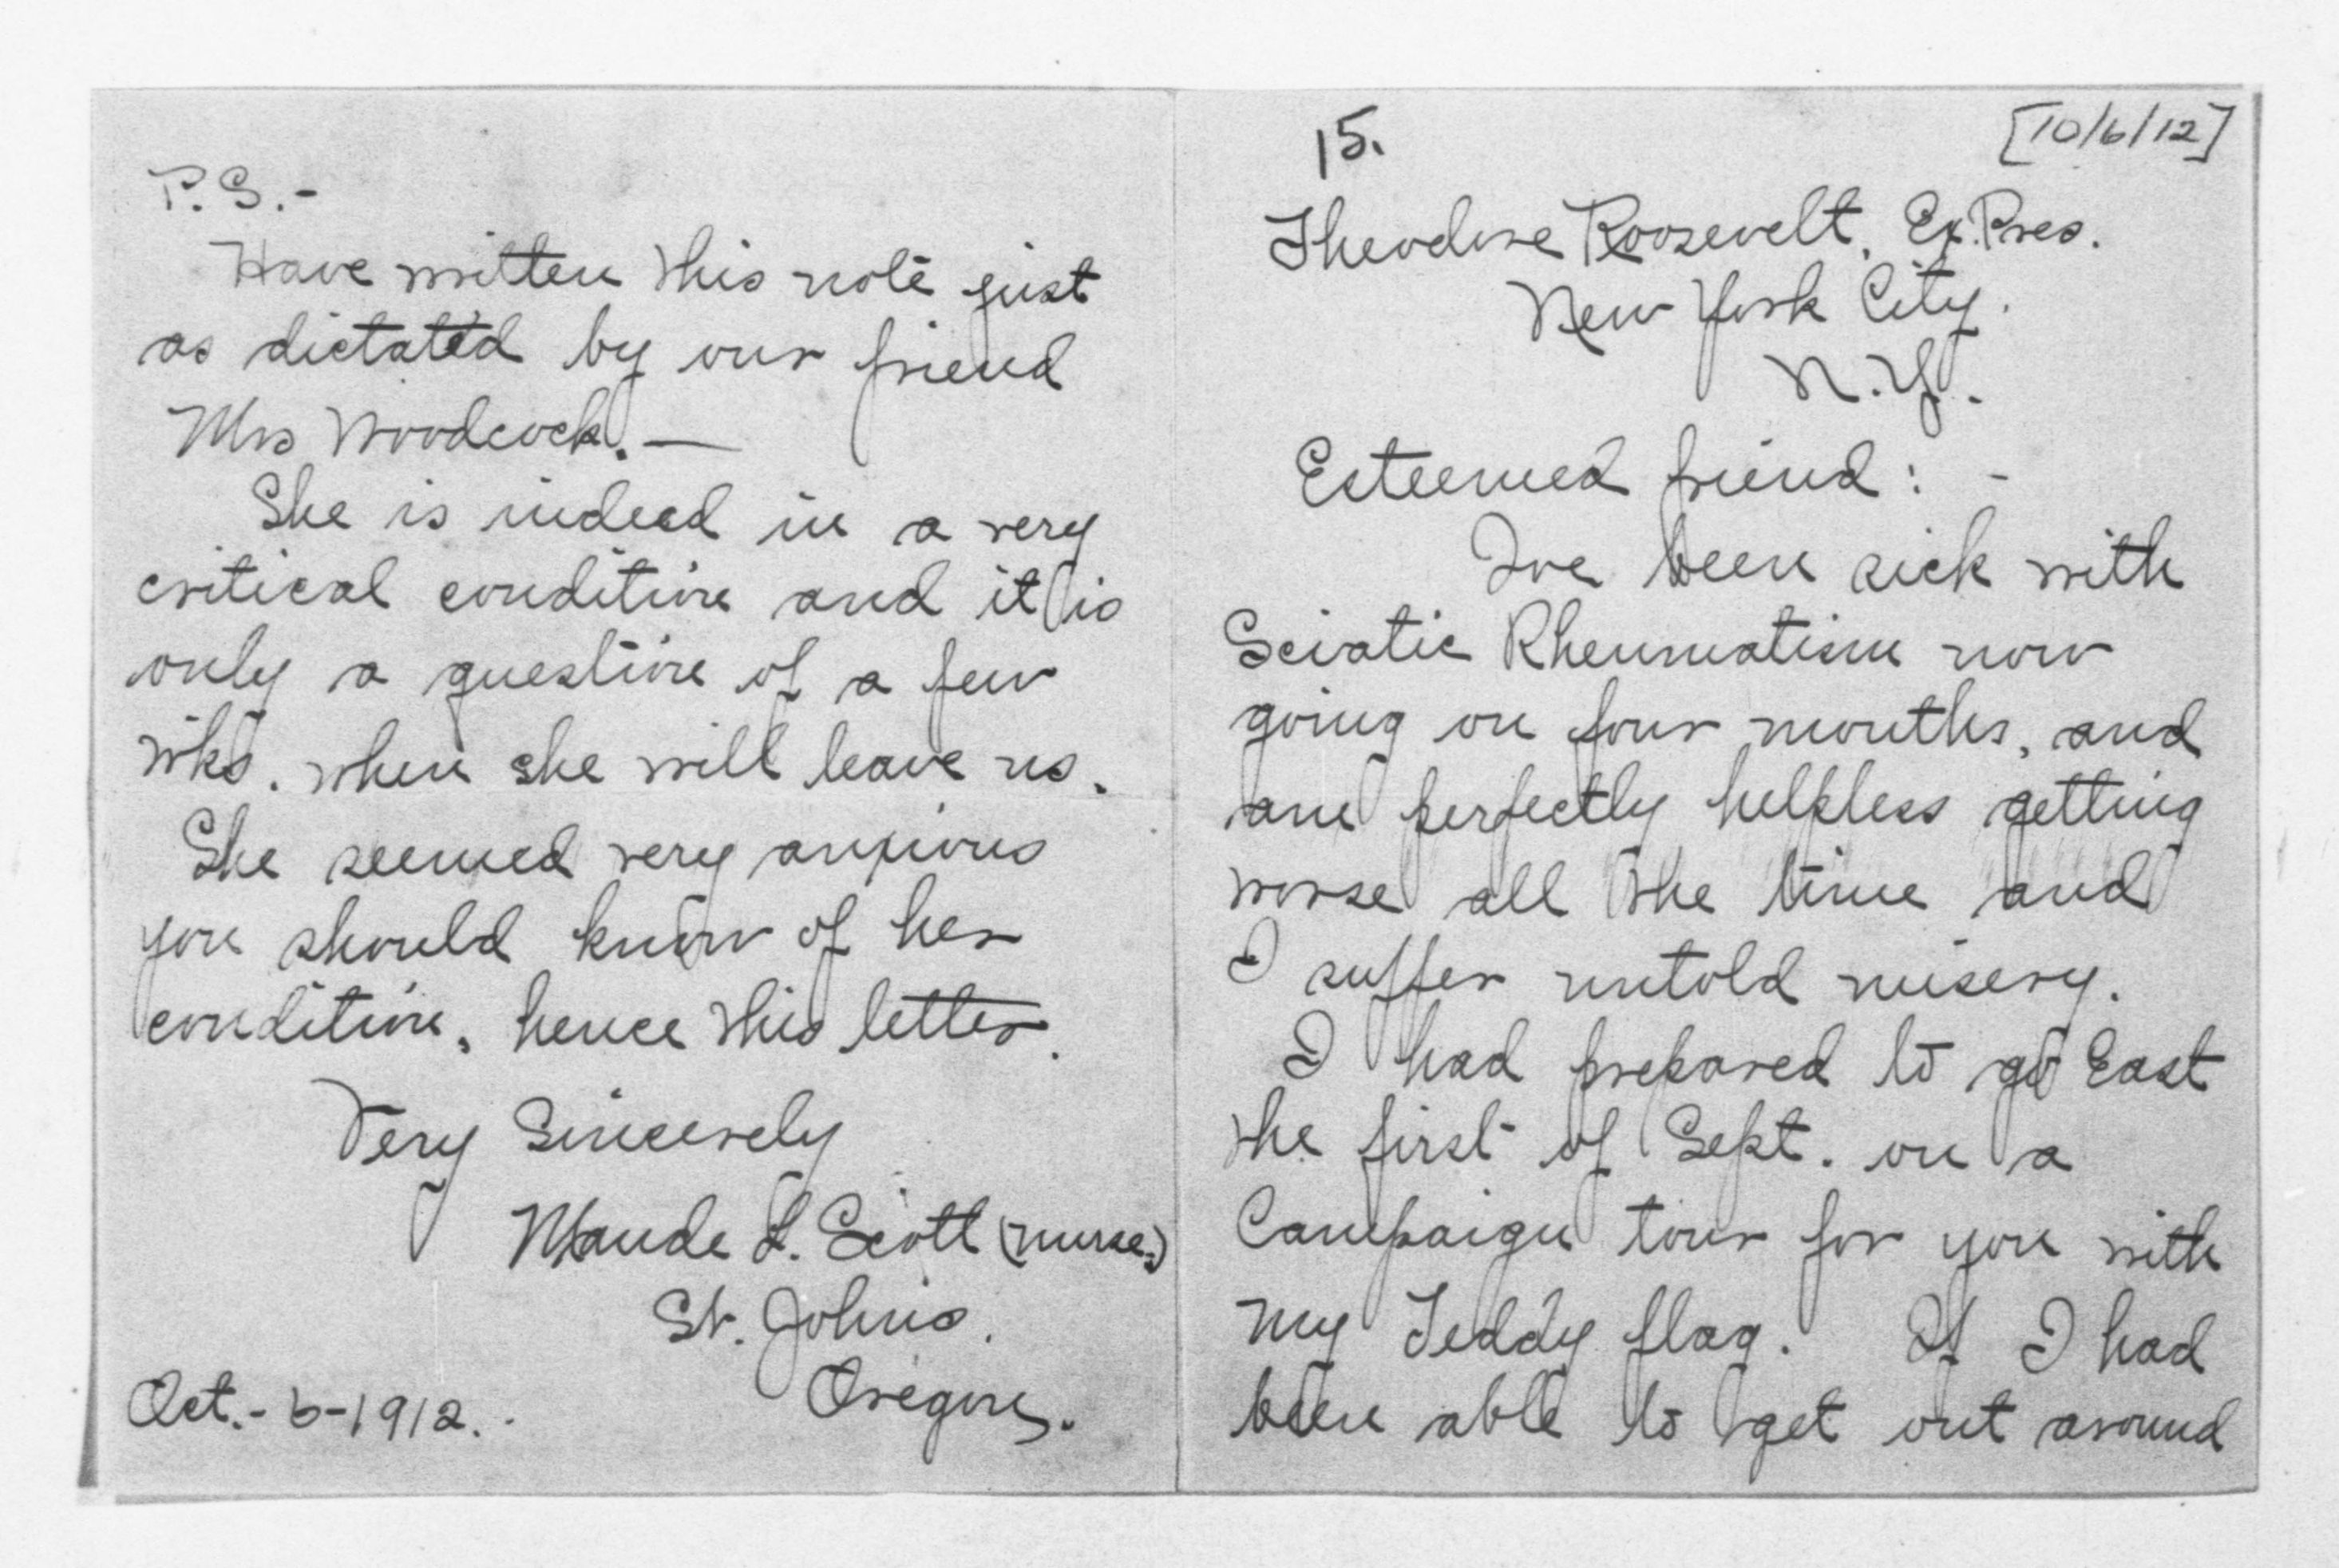 P.S.-
Have written this note just
as dictated by our friend
Mrs Woodcock. —
She is indeed in a very
critical condition and it is
only a question of a few
wks. when she will leave us.
She seemed very anxious
you should know of her
condition, hence this letter.
Very Sincerely
Maude L. Scott (nurse.)
St. Johns.
Oregon.
Oct.-6-1912.
15.
[10/6/12]
Theodore Roosevelt, Ex.Pres.
New York City.
N.Y.
Esteemed friend: -
Ive been sick with
Sciatic Rheumatism now
going on four months, and
am perfectly helpless getting
worse all the time and
I suffer untold misery.
I had prepared to go East
the first of Sept. on a
Campaign tour for you with
my Teddy flag. If I had
been able to get out around